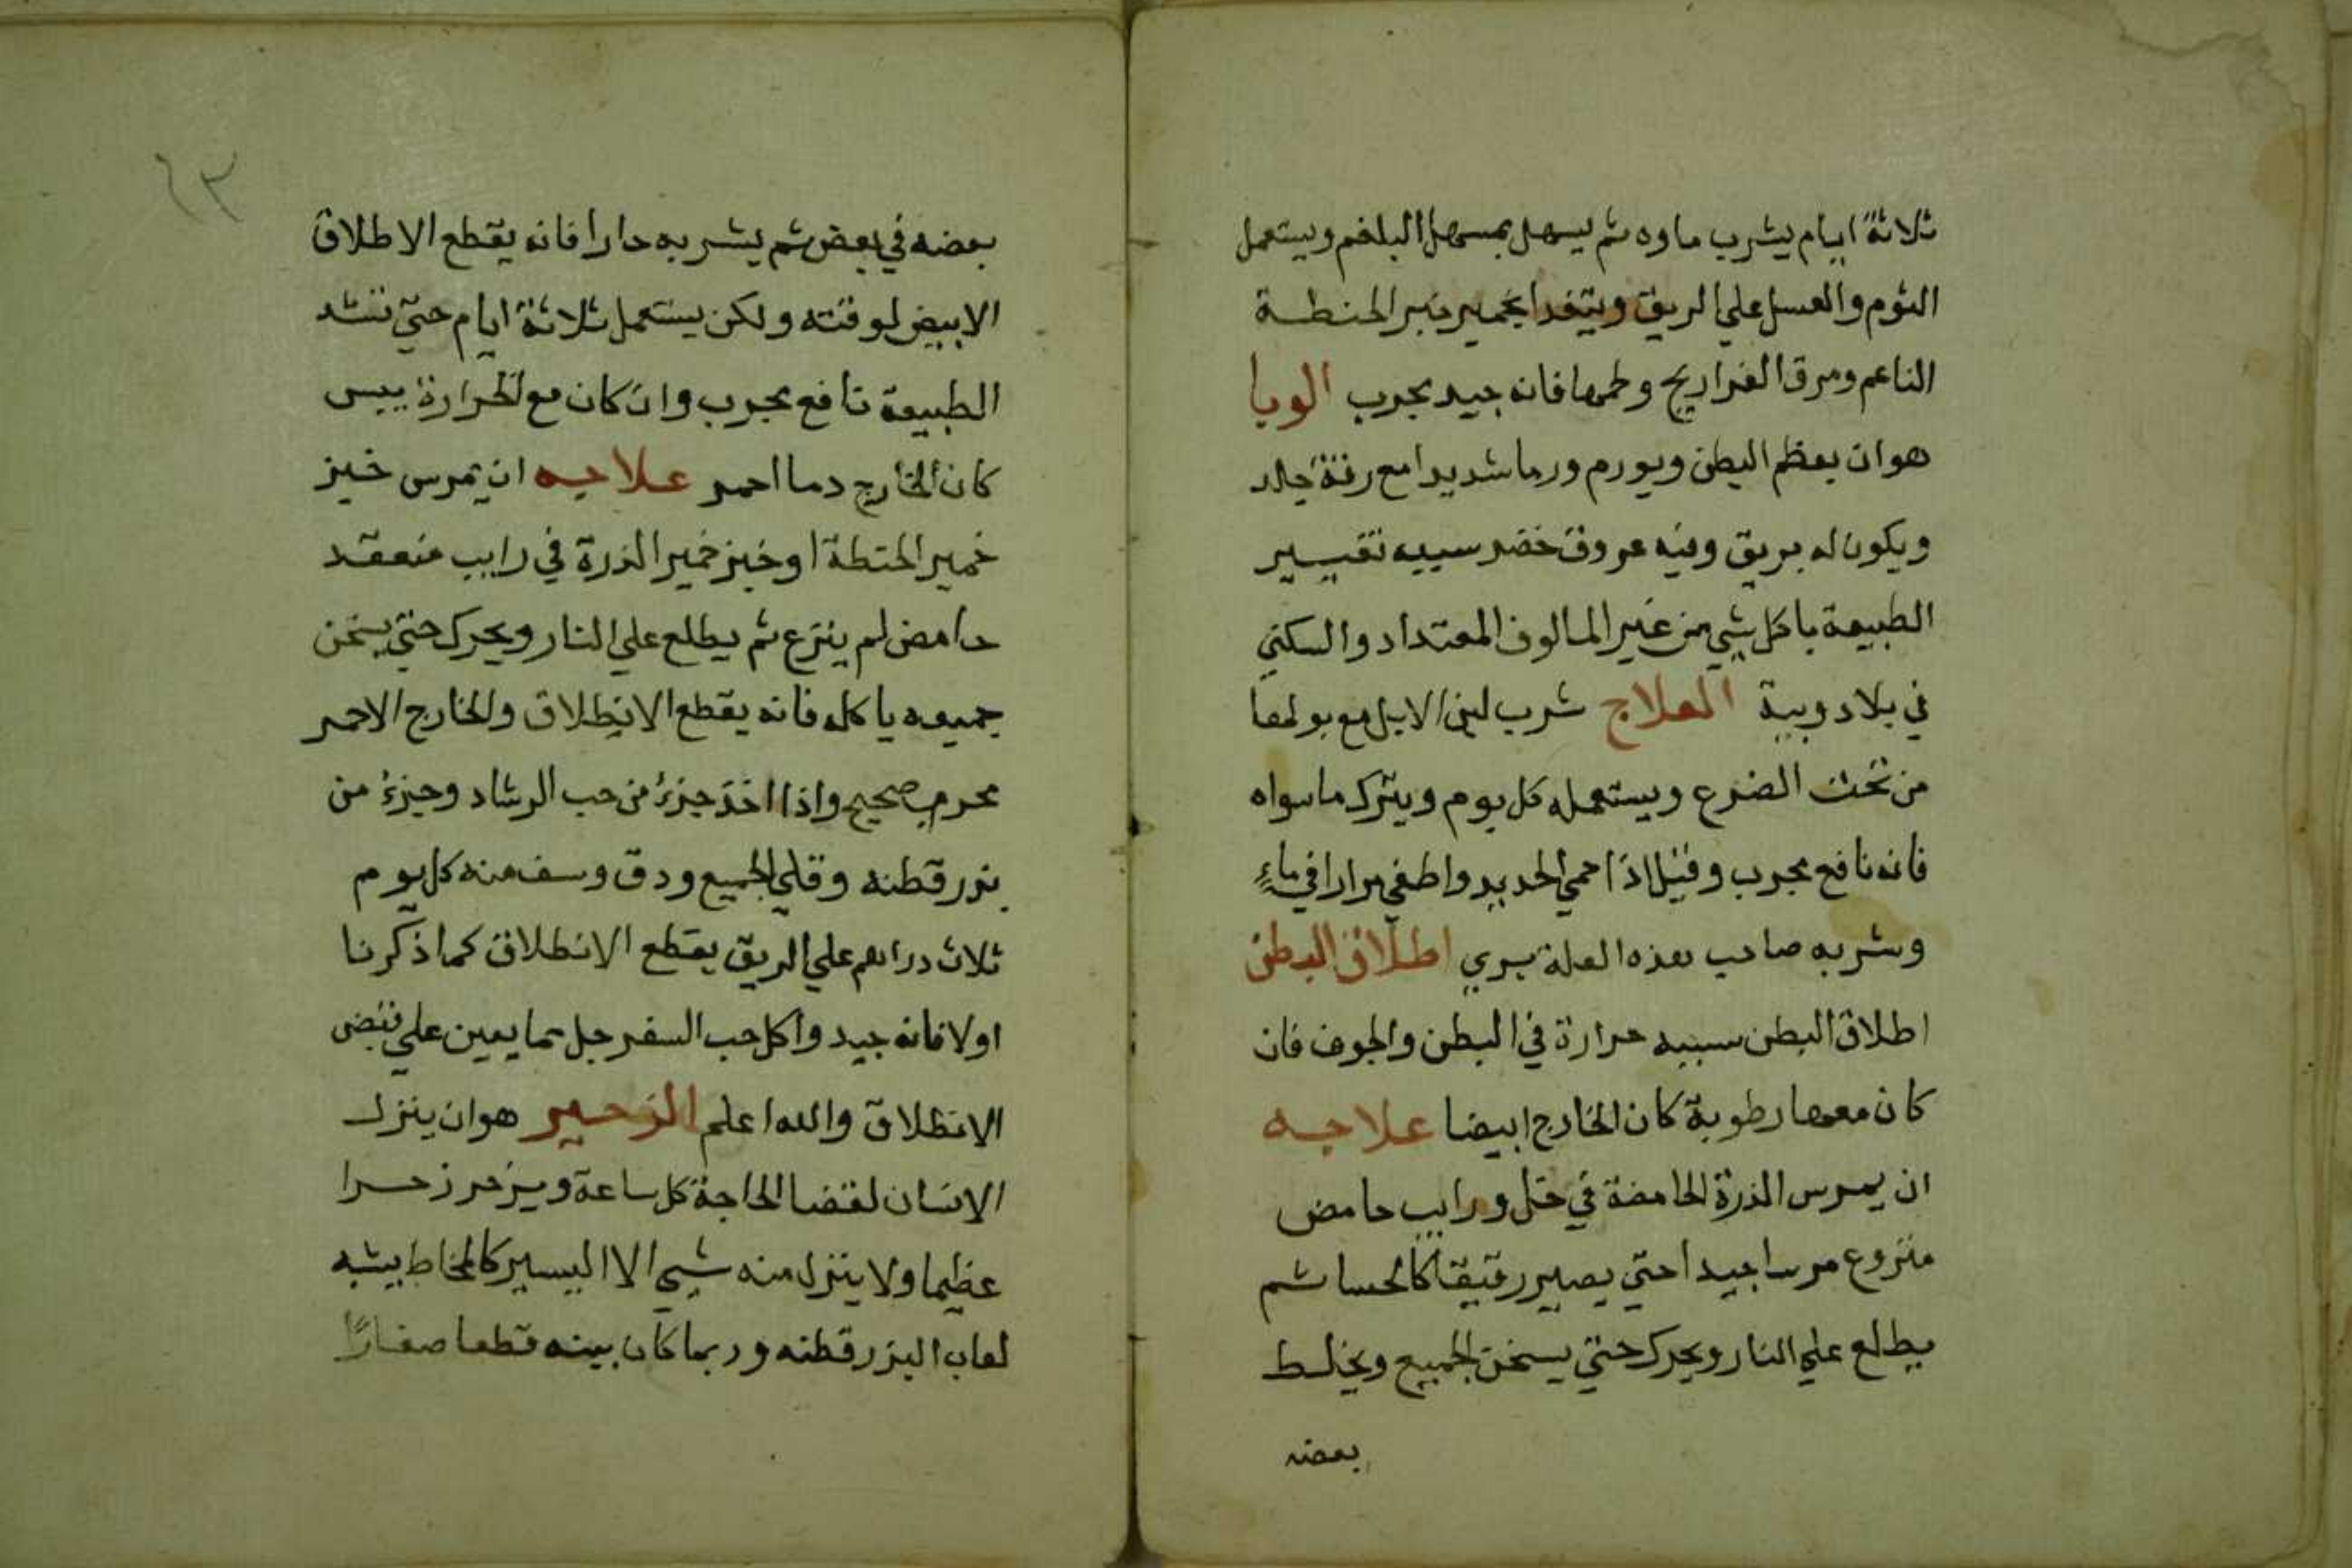 ثلاثة ايام يشرب ماوه ثم يسهل بمسهل البلغم ويستعمل
الثوم والعسل علي الريق ويتغدا بخمير خبز الحنطة
الناعم ومرق الفراريج ولحمها فانه جيد مجرب الوبا
هو ان يعظم البطن ويورم ورما شديدا مع رقة جلد
ويكون له بريق وفيه عروق خضر سببه تغيير
الطبيعة باكل شي من غير المالوف المعتداد والسكني
في بلاد وبية العلاج شرب لبن الابل مع بولها
من تحت الضرع ويستعمله كل يوم ويترك ما سواه
فانه نافع مجرب وقيل اذا احمي الحديد واطفي مرارا في ماء
وشربه صاحب هذه العلة بري اطلاق البطن
اطلاق البطن سببه حرارة في البطن والجوف فان
كان معها رطوبة كان الخارج ابيضا علاجه
ان يمرس الذرة الحامضة في خل ورايب حامض
منزوع مرسا جيدا حتي يصير رقيقا كالحسا ثم
يطلع علي النار ويحرك حتي يسخن الجميع ويخلط
بعضه
٦٣
بعضه في بعض ثم يشربه حارا فانه يقطع الاطلاق
الابيض لوقته ولكن يستعمل ثلاثة ايام حتي تشد
الطبيعة نافع مجرب وان كان مع الحرارة يبس
كان الخارج دما احمر علاجه ان يمرس خبز
خمير الحنطة او خبز خمير الذرة في رايب منعقد
حامض لم ينزع ثم يطلع علي النار ويحرك حتي يسخن
جميعه ياكله فانه يقطع الانطلاق والخارج الاحمر
مجرب صحيح واذا اخذ جزء من حب الرشاد وجزء من
بزر قطنه وقلي الجميع ودق وسف منه كل يوم
ثلاث دراهم علي الريق يقطع الانطلاق كما ذكرنا
اولا فانه جيد واكل حب السفرجل مما يعين علي قبض
الانطلاق والله اعلم الزحير هو ان ينزل
الانسان لقضا الحاجة كل ساعة ويزحر زحرا
عظيما ولا ينزل منه شي الا اليسير كالمخاط يشبه
لعاب البزر قطنه وربما كان بينه قطعا صغارًا